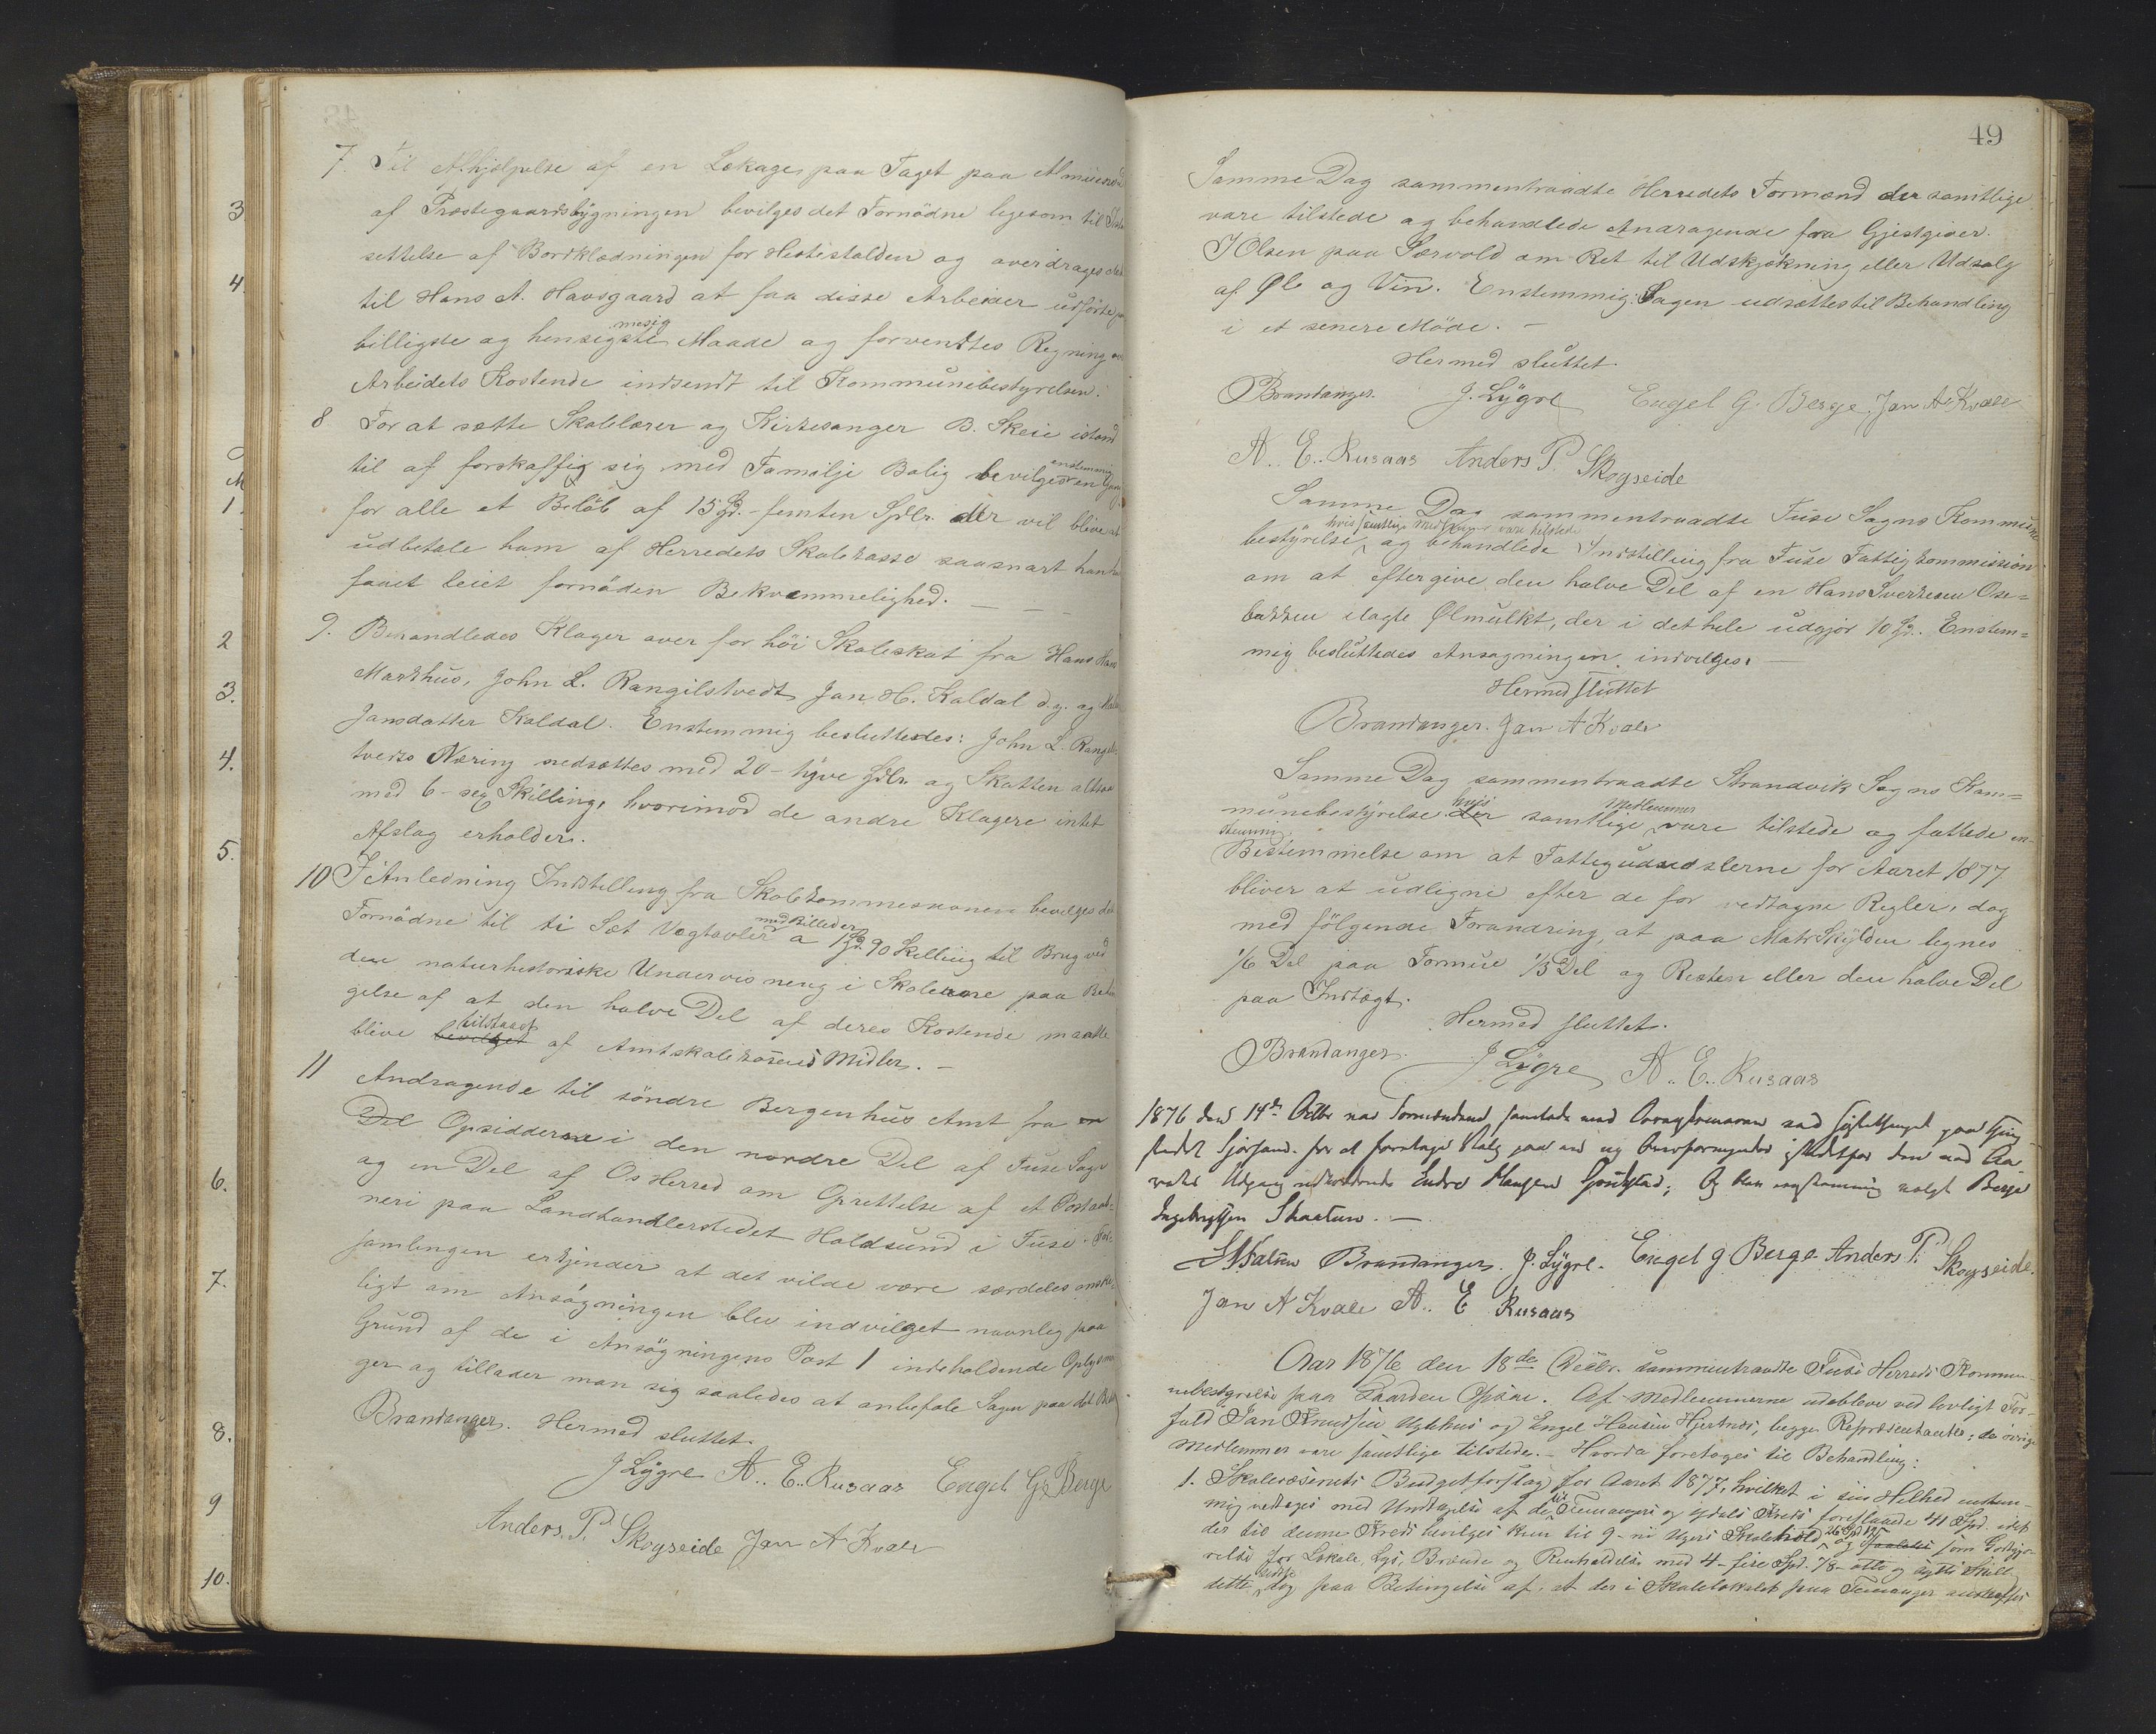 7. Til Afhjelpelse af en Lekage paa Taget paa
af Præstegaardsbygningen bevilges det Fornödne ligesom til
settelse af Bordklædningen for Hestestalden og overdrages det
til Hans A. Havsgaard at faa disse Arbeider udförte paa
billigste og hensigstmesig Maade og forventtes Regning over
Arbeidets Kostende indsendt til Kommunebestyrelsen.
8 For at sætte Skolelærer og Kirkesanger B. Skeie istand
til af forskaffig sig med Familje Bolig bevilges enstemmig en Gang
for alle et Belöb af 15 Spd. - femten Spdlr. der vil blive at
udbetale ham af Herredets Skolekasse saasnart han har
faaet leiet fornöden Bekvæmmelighed. — — —
9. Behandledes Klager over for höi Skoleskat fra Hans Hans
Markhus, John L. Rangilstvedt, Jan H. Kaldal d.y. og
Jansdatter Kaldal. Enstemmig besluttedes: John L. Rangils-
tvedts Næring nedsættes med 20 - tyve Spdlr. og Skatten altsaa
med 6 - sex Skilling, hvorimod de andre Klagere intet
Afslag erholder.
10 I Anledning Indstilling fra Skolekommesionen bevilges det
Fornödne til ti Sæt Vægtavler med Billeder a 1 Spd. 90 Skilling til Brug ved
den naturhistoriske Undervisning i Skolerne paa Betin
gelse af at den halve Del af deres Kostende maatte
blive bevilget tilstaaet af Amtskolekassens Midler. —
11 Andragende til söndre Bergenhus Amt fra en
Del Opsiddere i den nordre Del af Fuse Sogn
og en Del af Os Herred om Oprettelse af et Postaab-
neri paa Landhandlerstedet Holdsund i Fuse. For-
samlingen erkjender at det vilde være særdeles önske-
ligt om Ansögningen blev indvilget navnlig paa
Grund af de i Ansögningens Post 1 indeholdende Oplysnin
ger og tillader man sig saaledes at anbefale Sagen paa det Bedste
Hermed sluttet.
Brandanger.
J Lygre A.. E.. Rusaas Engel G. Berge
Anders. P. Skogseide Jan A Kvale
49
Samme Dag sammentraadte Herredets Formænd der samtlige
vare tilstede og behandlede Andragende fra Gjestgiver
J Olsen paa Særvold om Ret til Udskjækning eller Udsalg
af Øl og Vin. Enstemmig: Sagen udsættes til Behandling
i et senere Möde. —
Hermed sluttet.
Brandanger. J. Lygre Engel G. Berge. Jan A Kvale
A.. E.. Rusaas Anders P. Skogseide
Samme Dag sammentraadte Fuse Sogns Kommune
bestyrelse hvis samtlige Medlemmer vare tilstede og behandlede Indstilling fra Fuse Fattigkommission
om at eftergive den halve Del af en Hans Sverkesen Ose=
bakken ilagte Ølmulkt, der i det hele udgjör 10 Spd. Enstem=
mig besluttedes Ansøgningen indvilges. —
Hermed sluttet
Brandanger. Jan A Kvale
Samme Dag sammentraadte Strandvik Sogns Kom=
munebestyrelse der hvis samtlige Medlemmer vare tilstede og fattede en-
stemmig
Bestemmelse om at Fattigudredslerne for Aaret 1877
bliver at udligne efter de för vedtagne Regler, dog
med fölgende Forandring, at paa MatrSkylden lignes
1/6 Del paa Formue 1/3 Del og Resten eller den halve Del
paa Indtægt.
Hermed sluttet.
Brandanger. J Lygre A.. E.. Rusaas
1876 den 14de Octbr var Formændene samlede med
stedet Sjørsand for at foretage Valg paa en ny Overformynder istedetfor den ved Aa-
rets Udgang udtrædende Endre Mangsen Gjuvstad; Og blev enstemmig valgt Berge
Ingebrigtsen Skaatun. —
Brandanger. J. Lygre. Engel G Berge Anders P. Skogseide.
Jan A Kvale A.. E Rusaas
Aar 1876 den 18de sammentraadte Fuse Herreds Kommu-
nebestyrelse paa Gaarden Opsal. Af Medlemmerne udebleve ved lovligt For-
fald Jan Knudsen og Engel Hansen Hjertnes, begge Repræsentanter; de övrige
Medlemmer vare samtlige tilstede. — Hvorda foretoges til Behandling:
1. Skolevæsenets Budgetforslag for Aaret 1877, hvilket i sin Helhed enstem-
mig vedtoges med Undtagelse af de til og Ydals Kreds foreslaaede 41 Spd. idet
der til denne Kreds bevilges kun til 9 - ni Ugers Skolehold og som Godtgjø-
relse for Lokale, Lys, Brænde og Renholdelse med 4 - fire Spd. 78 - otte og sytti Skill
dette dog paa Betingelse af, at der i Skolelokalet paa anskaffes